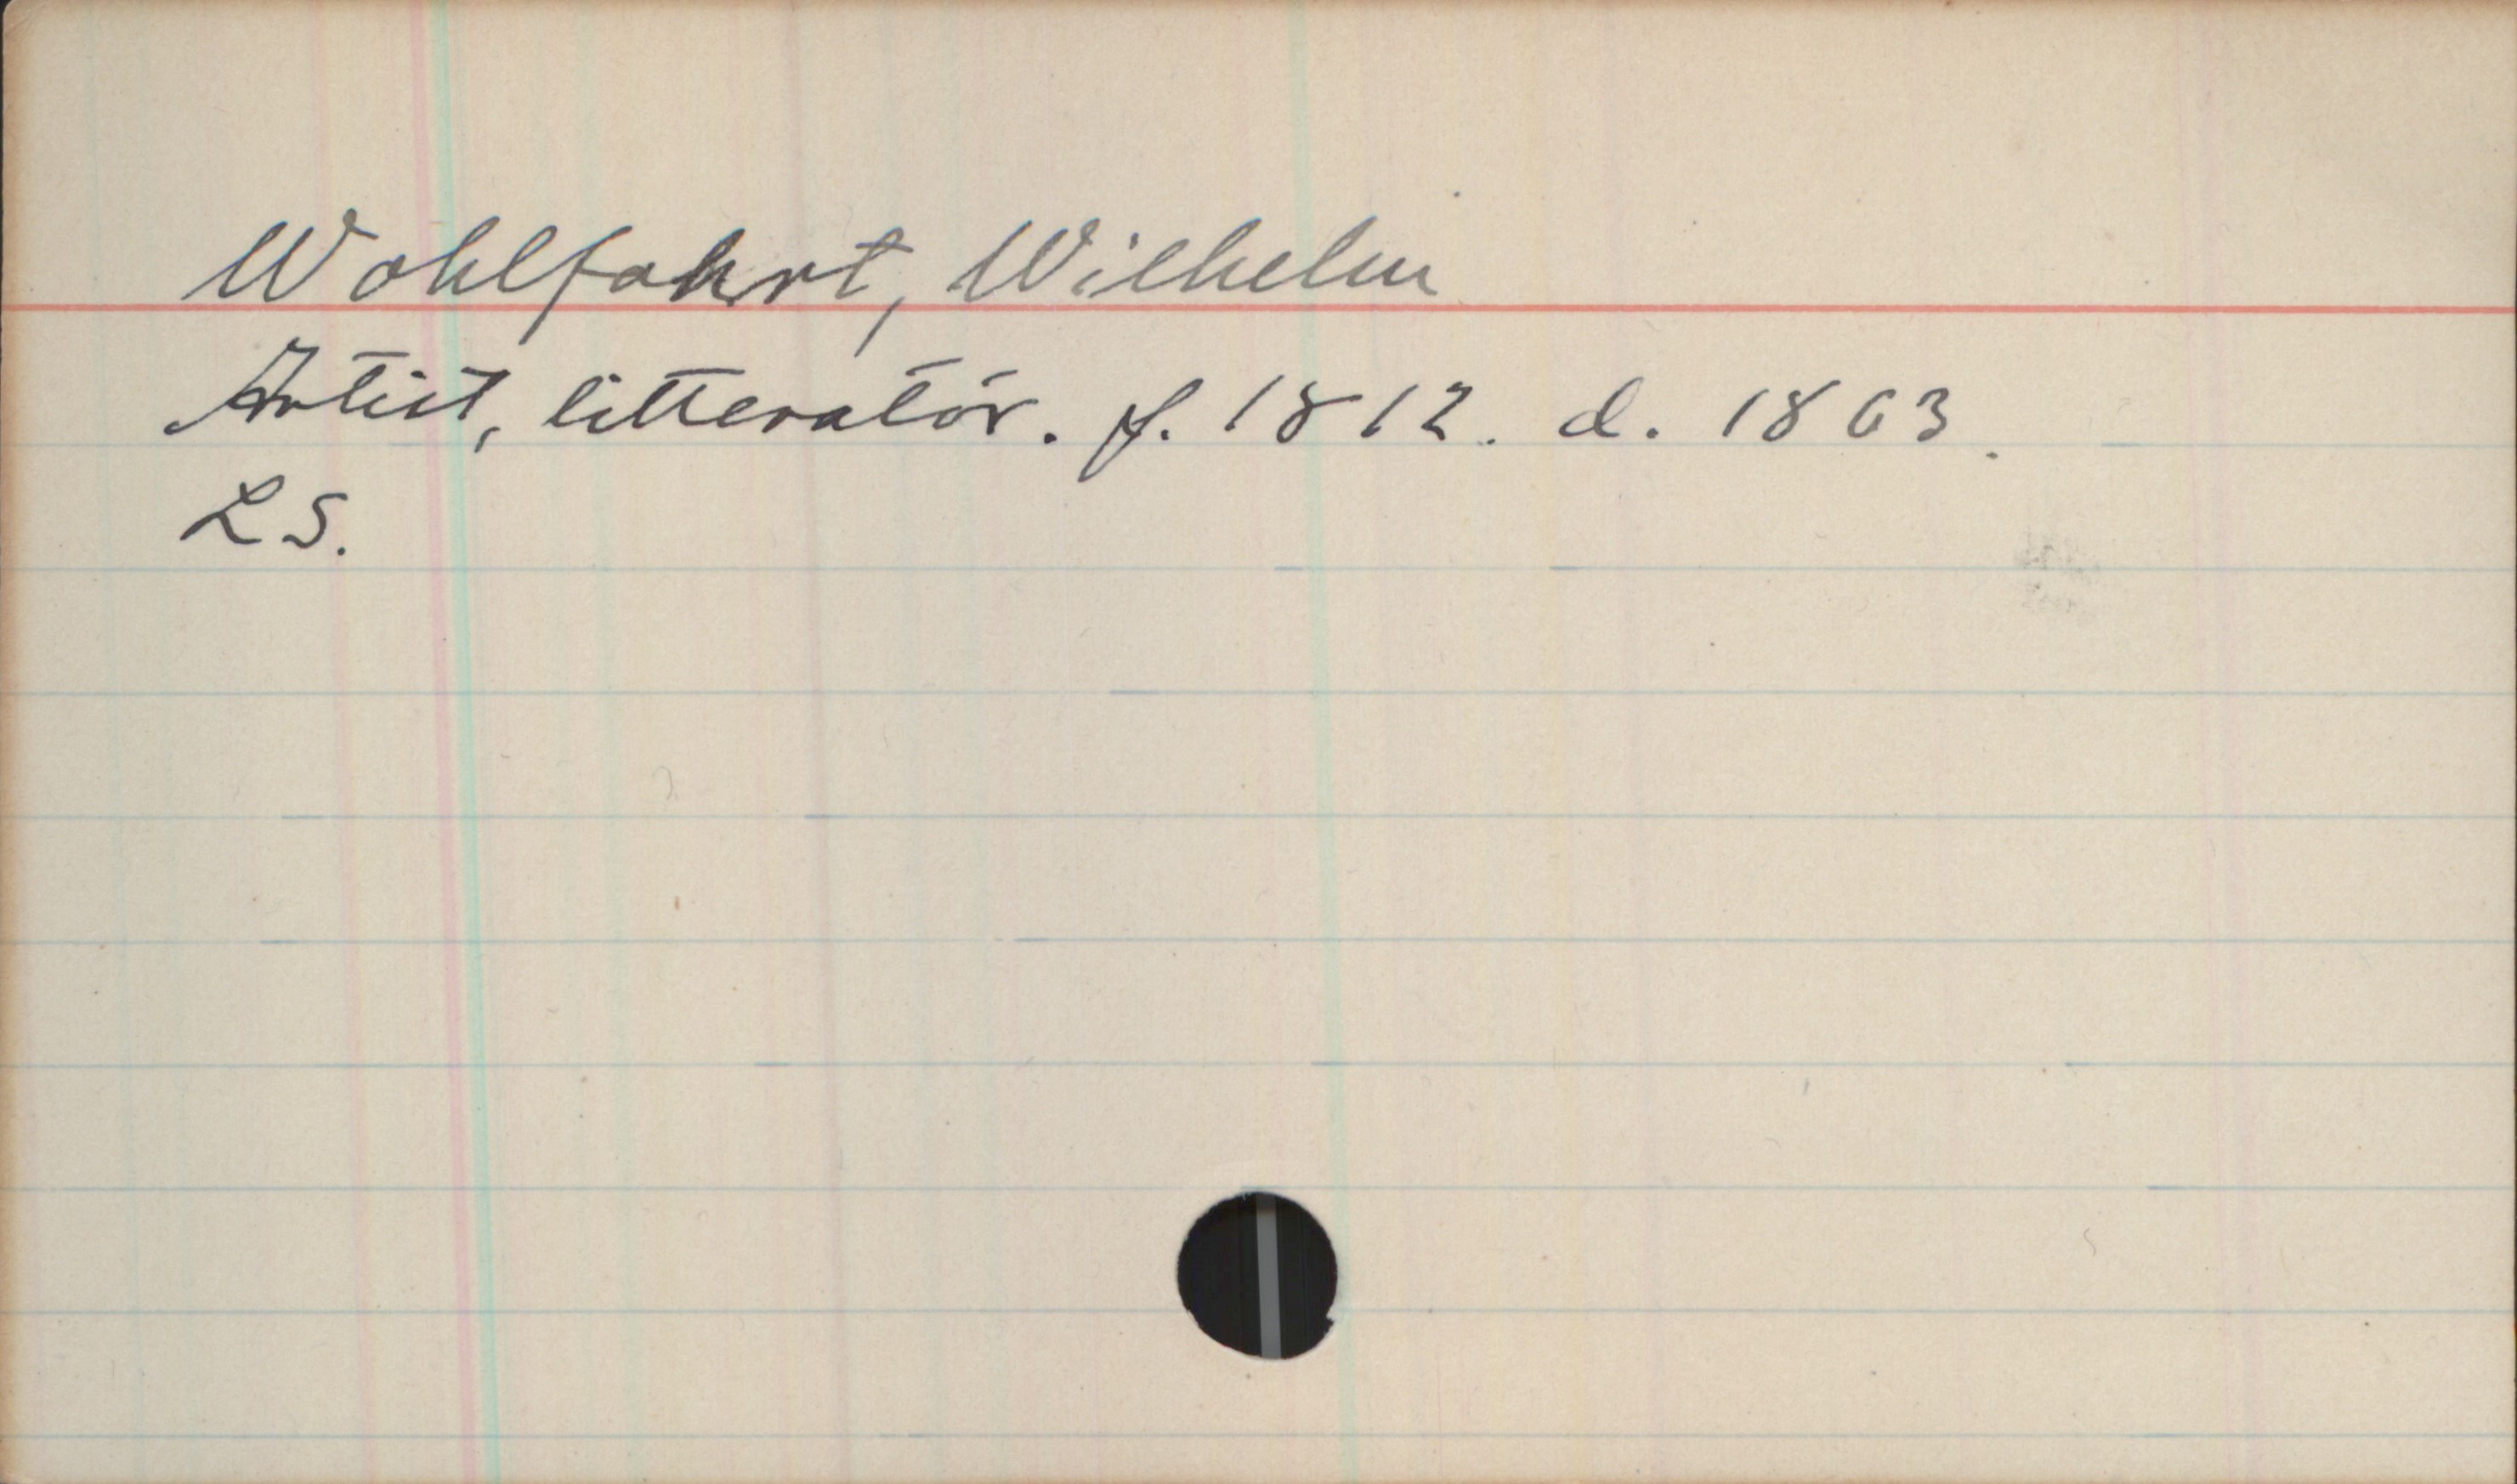 Wohlfahrt, Wilhelm
Artist, litteratör. f. 1812. d. 1863.
LS.